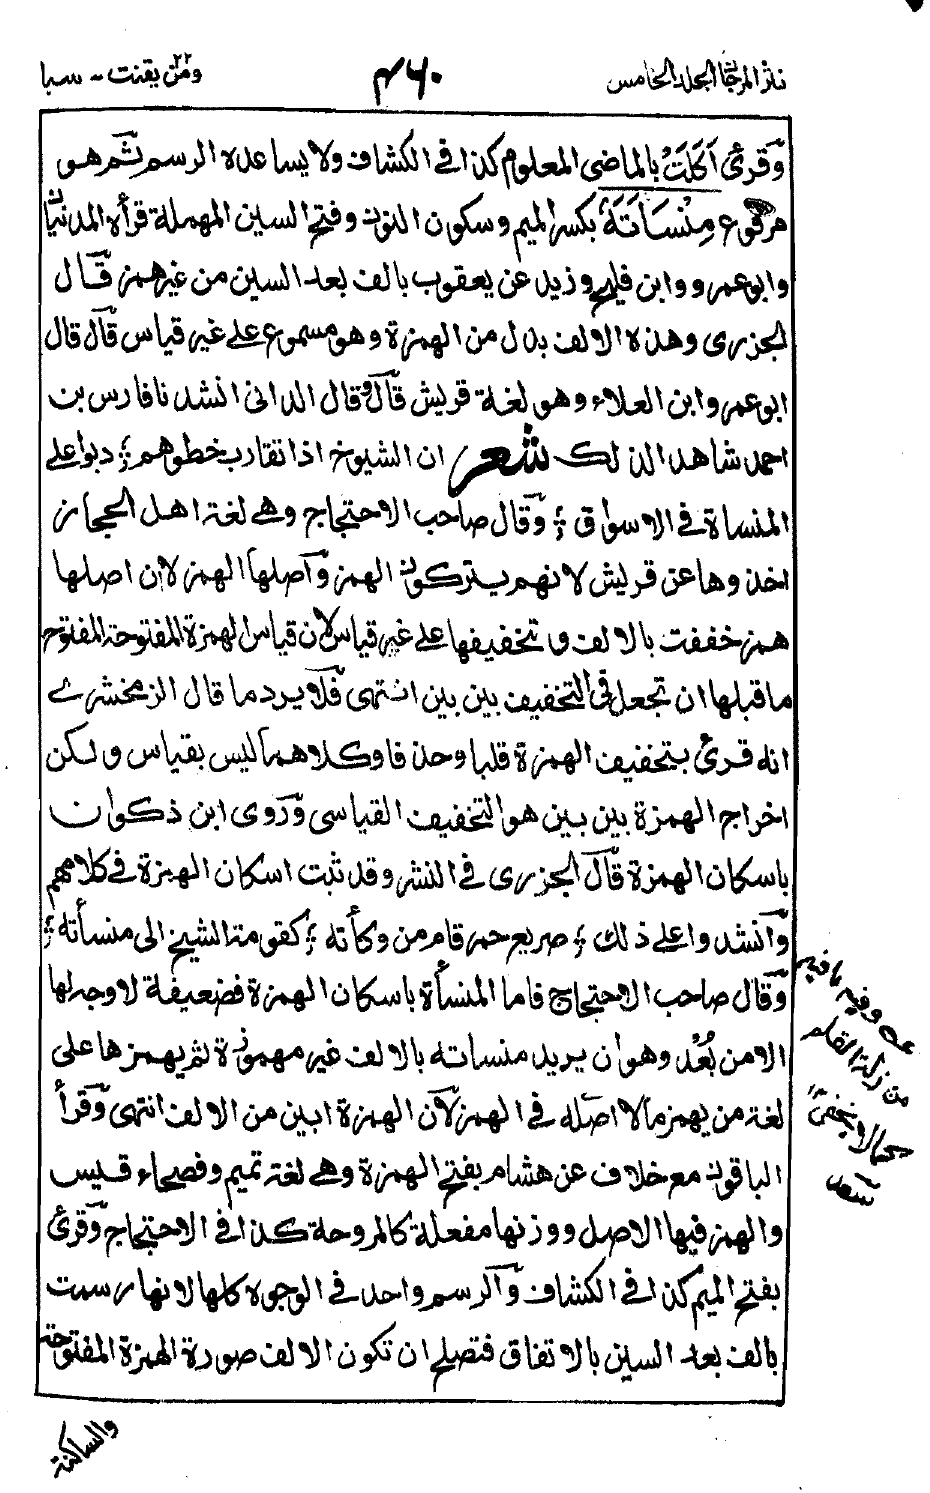 نثر المرجان المجلد الخامس ٤٦٠ ومن يقنت ٢٢ - سبا
وقرئ اَكَلَتْ بالماضى المعلوم كذا فى الكشاف ولا يساعده الرسم ثم هو
مرفوع مِنْسَاَتَهٗ بكسر الميم وسكون النون وفتح السين المهملة قرأه المدنيان
وابو عمرو وابن فليح وزيد عن يعقوب بالف بعد السين من غير همز قال
الجزرى وهذه الالف بدل من الهمزة وهو مسموع على غير قياس قال قال
ابو عمرو ابن العلاء وهو لغة قريش قال وقال الدانى انشدنا فارس بن
احمد شاهدا لذلك شعر ان الشيوخ اذا تقارب خطوهم ؛ دبوا على
المنساة فى الاسواق ؛ وقال صاحب الاحتجاج وهى لغة اهل الحجاز
اخذوها عن قريش لانهم يتركون الهمز واصلها الهمز لان اصلها
همز خففت بالالف وتخفيفها على غير قياس لان قياس الهمزة المفتوحة المفتوح
ما قبلها ان تجعل فى التخفيف بين بين انتهى فلا يرد ما قال الزمخشرى
انه قرئ بتخفيف الهمزة قلبا وحذفا وكلاهما ليس بقياس ولكن
اخراج الهمزة بين بين هو التخفيف القياسى وروى ابن ذكوان
باسكان الهمزة قال الجزرى فى النشر وقد ثبت اسكان الهمزة فى كلامهم
وانشدوا على ذلك ؛ صريع خمر قام من وكأته ؛ كقومة الشيخ الى منسأته ؛
وقال صاحب الاحتجاج فاما المنسأة باسكان الهمزة فضعيفة لا وجه لها
الا من بُعْد وهو ان يريد منساته بالالف غير مهموزة ثم يهمزها على
لغة من يهمز ما لا اصله فى الهمز لان الهمزة ابين من الالف انتهى وقرأ
الباقون مع خلاف عن هشام بفتح الهمزة وهى لغة تميم وفصحاء قيس
والهمز فيها الاصل ووزنها مفعلة كالمروحة كذا فى الاحتجاج وقرئ
بفتح الميم كذا فى الكشاف والرسم واحد فى الوجوه كلها لانها رسمت
بالف بعد السين بالاتفاق فتصلح ان تكون الالف صورة الهمزة المفتوحة
والساكنة
عه وفيه ما فيه
من زلة القلم
كما لا يخفى ١٢
سعد